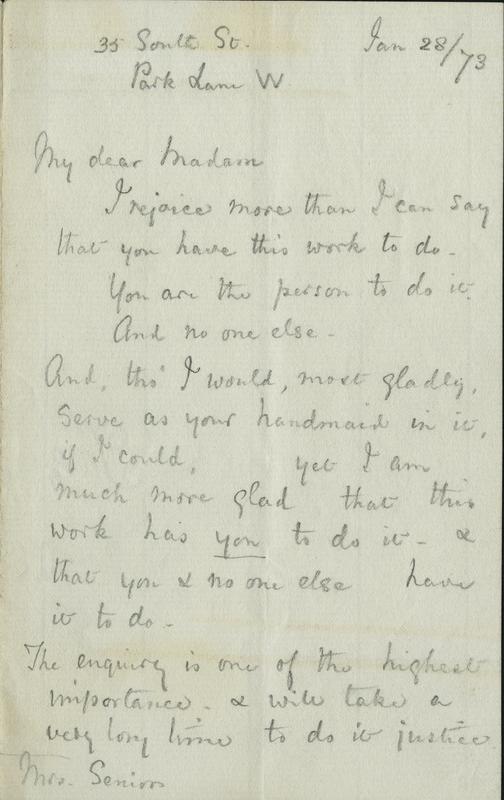 35 South St. Jan 28/73
Park Lane W
My dear Madam
I rejoice more than I can say
that you have this work to do.
You are the person to do it.
And no one else -
And, tho' I would, most gladly,
serve as your handmaid in it,
if I could, yet I am
much more glad that this
work has you to do it - &
that you & no one else have
it to do.
The enquiry is one of the highest
importance - & will take a
very long time to do it justice.
Mrs. Senior